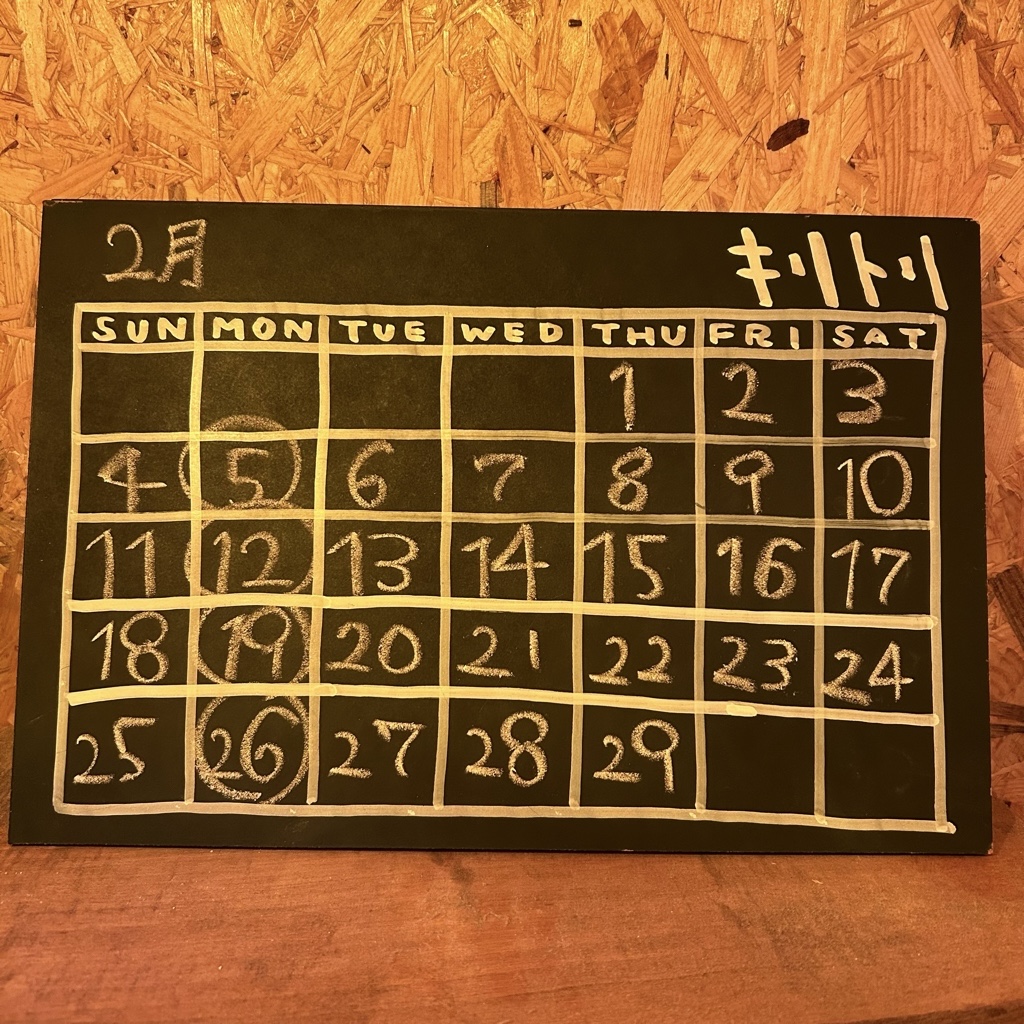 2月 キリトリ
SUN MON TUE WED THU FRI SAT
1 2 3
4 5 6 7 8 9 10
11 12 13 14 15 16 17
18 19 20 21 22 23 24
25 26 27 28 29